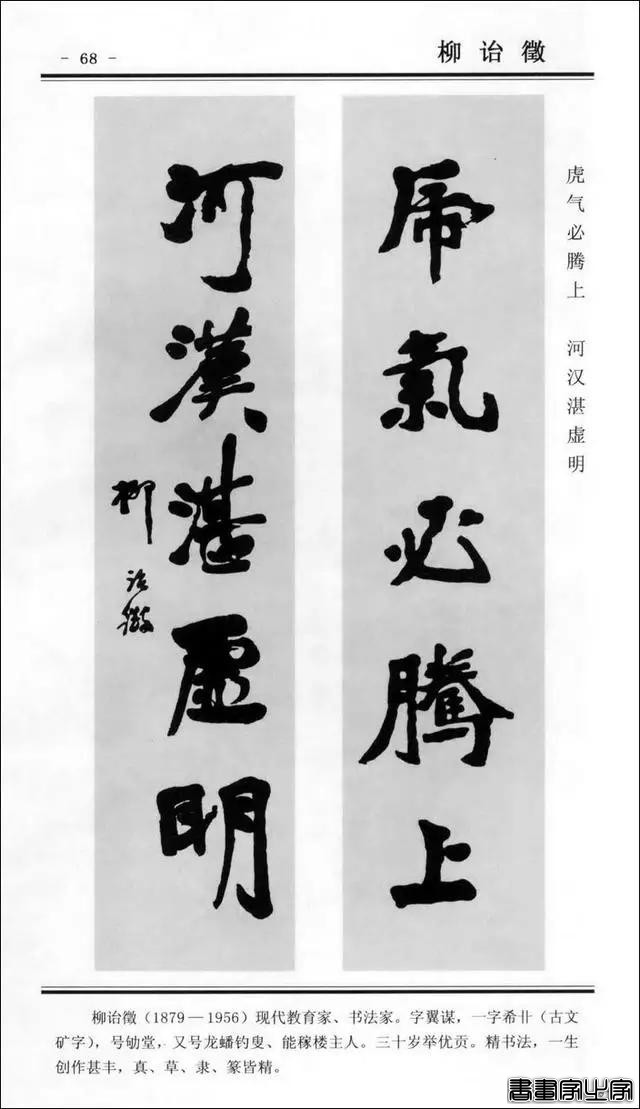 - 68 -
柳诒徵
虎气必腾上 河汉湛虚明
虎氣必騰上
河漢湛虛明
柳詒徵
柳诒徵（1879—1956）现代教育家、书法家。字翼谋，一字希卝（古文
矿字），号劬堂，又号龙蟠钓叟、能稼楼主人。三十岁举优贡。精书法，一生
创作甚丰，真、草、隶、篆皆精。
書畫家之家